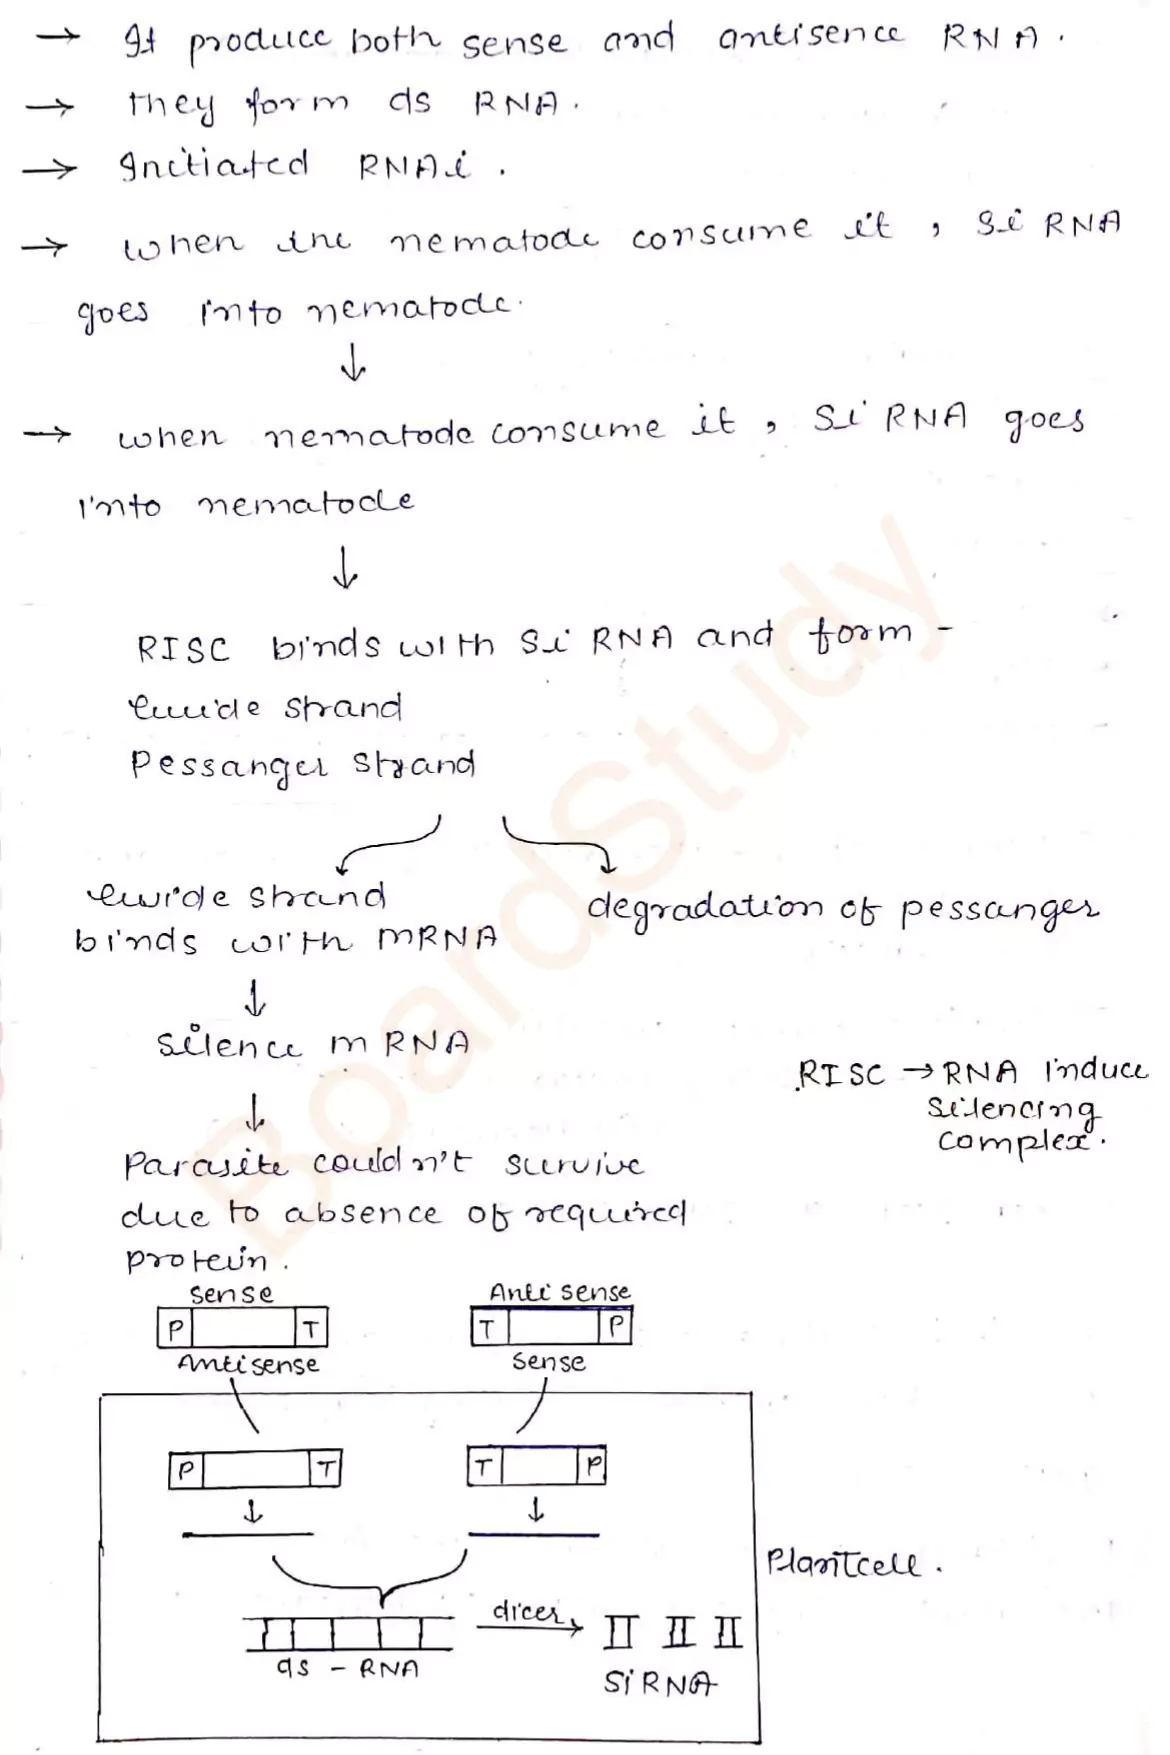 → It produce both sense and antisence RNA.
→ they form ds RNA.
→ Initiated RNAi.
→ when the nematode consume it, Si RNA
goes into nematode.
↓
→ when nematode consume it, Si RNA goes
into nematode
↓
RISC binds with Si RNA and form -
Guide strand
Pessanger strand
Guide strand
binds with mRNA
degradation of pessanger
↓
Silence mRNA
↓
RISC → RNA induce
Silencing
complex.
Parasite couldn't survive
due to absence of required
protein.
Sense
P T
Antisense
Anti sense
T P
Sense
P T
T P
↓ ↓
Plantcell.
dicer
ds - RNA
Si RNA
BoardStudy